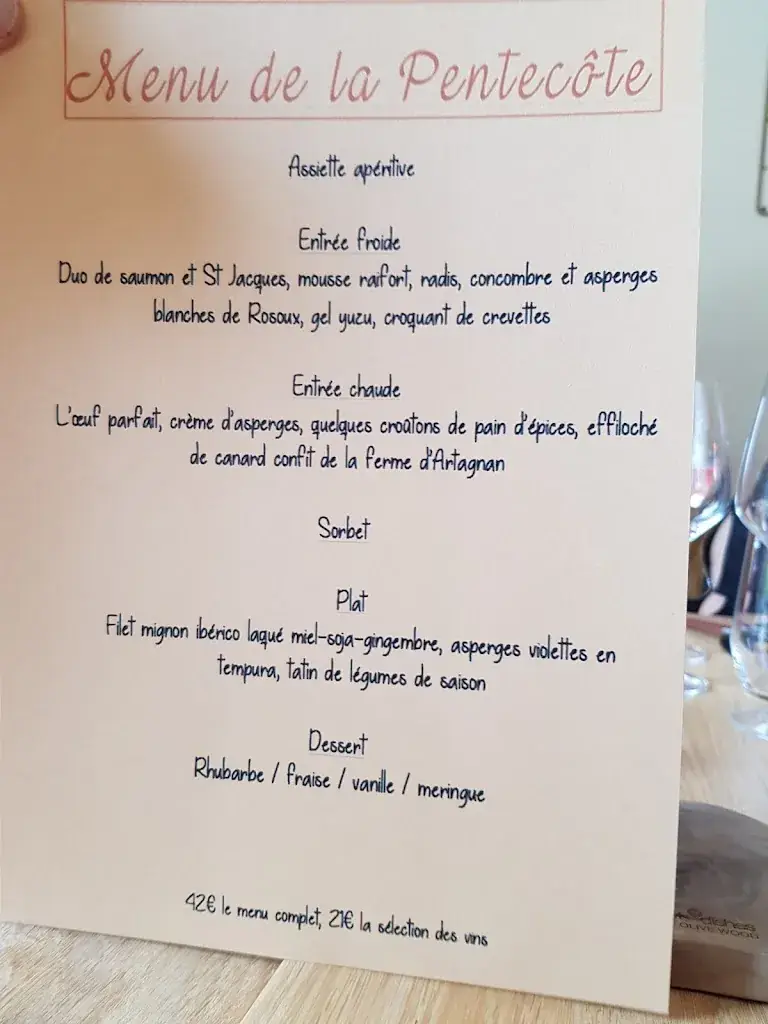 Menu de la Pentecôte
Assiette apéritive
Entrée froide
Duo de saumon et St Jacques, mousse raifort, radis, concombre et asperges
blanches de Rosoux, gel yuzu, croquant de crevettes
Entrée chaude
L'œuf parfait, crème d'asperges, quelques croûtons de pain d'épices, effiloché
de canard confit de la ferme d'Artagnan
Sorbet
Plat
Filet mignon ibérico laqué miel-soja-gingembre, asperges violettes en
tempura, tatin de légumes de saison
Dessert
Rhubarbe / fraise / vanille / meringue
42€ le menu complet, 21€ la sélection des vins
OLIVEWOOD